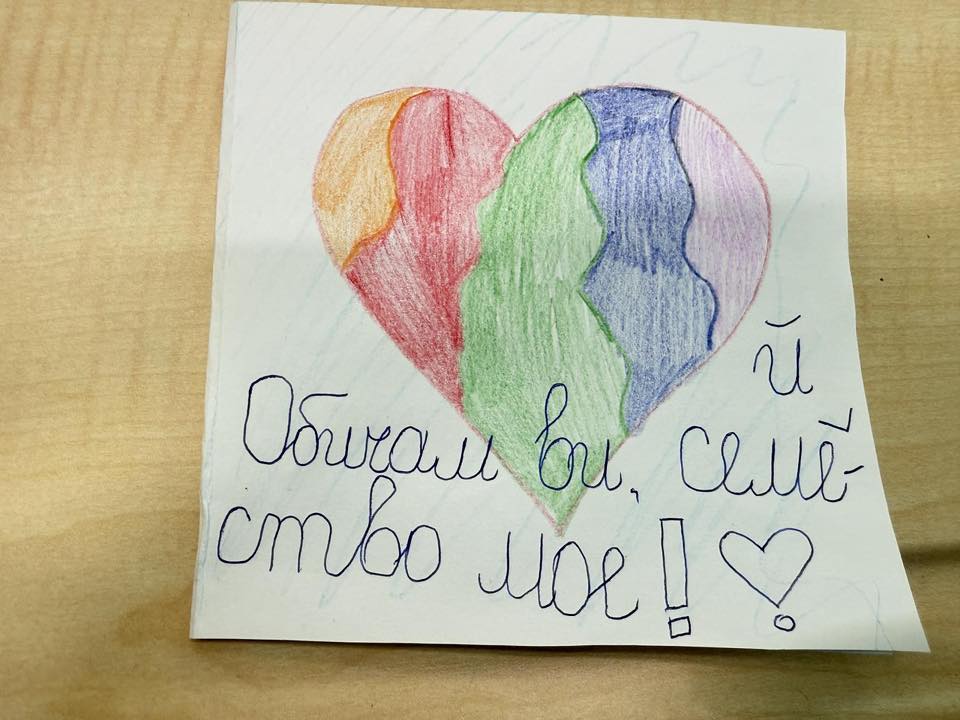 Обичам ви, семе-
й
ство мое!